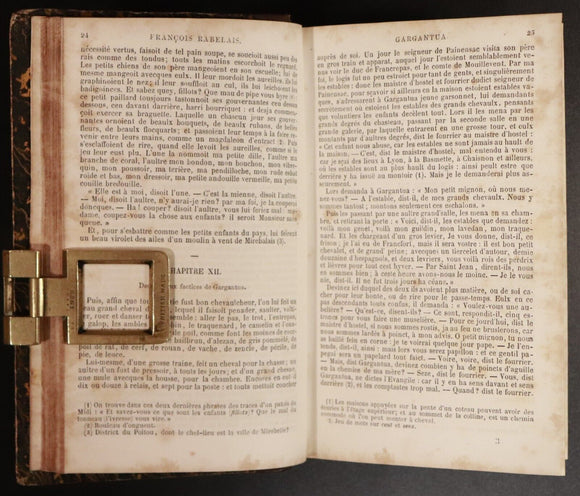 24 FRANÇOIS RABELAIS.
nécessité vertus, faisoit de tel pain soupe, se soucioit aussi peu des
rais comme des tondus; tous les matins escorchoit le regnard.
Les petits chiens de son père mangeoient en son escuelle; lui de
mesme mangeoit avecques eux. Il leur mordoit les aureilles. Ils lui
graphinoient le nez, il leur souffloit au cul, ils lui leichoient les
badigoinces. Et sabez quey, fillots? Que mau de pipe vous byre:
ce petit paillard tousjours tastonnoit ses gouvernantes cen dessus
dessous, cen davant darrière, harri bourriquet: et desjà commen-
çoit exercer sa braguette. Laquelle un chascun jour ses gouver-
nantes ornoient de beaux bouquets, de beaux rubans, de belles
fleurs, de beaux flocquarts; et passoient leur temps à la faire re-
venir entre leurs mains, comme un magdaleon d'entraict (2). Puis
s'esclaffoient de rire, quand elle levoit les aureilles, comme si le
jeu leur eust plu. L'une la nommoit ma petite dille, l'autre ma
branche de coral, l'autre mon bondon, mon bouchon, mon vibre-
quin, mon poussoir, ma trière, ma pendilloche, mon rude esbat
roide et bas, mon dressoir, ma petite andouille vermeille, ma petite
couille bredouille.
« Elle est à moi, disoit l'une. — C'est la mienne, disoit l'autre.
— Moi, disoit l'autre, n'y aurai-je rien? par ma foi, je la couperai
doncques. — Ha! couper? disoit l'autre, vous lui feriez mal; ma-
dame, coupez-vous la chose aux enfants? il seroit Monsieur sans
queue.
Et, pour s'esbattre comme les petits enfants du pays, lui feirent
un beau virolet des ailes d'un moulin à vent de Mirebalais (3).
CHAPITRE XII.
factices de Gargantua.
Puis, affin que tou fust bon chevaucheur, l'on lui fit un
beau grand cheval d lequel il faisoit penader, saulter, volti-
ger, ruer et danser semble: aller le pas, le trot, l'entrepas,
le galop, les ambles le traquenard, le
poil, comme font les moines de
de bailbrun, d'alezan, de gris pommelé, de
poil de rat, de cerf, de rouan, de vache, de zencle, de pécile, de
pie, de leuce.
Lui-mesme, d'une grosse traine, feit un cheval pour la chasse; un
aultre d'un fust de pressoir, à touts les jours; et d'un grand chesne,
une mule avecques la housse, pour la chambre. Encores en eut-il
dix ou douze à relais, et sept pour la poste: et touts mettoit coucher
(1) On trouve dans ces deux dernières phrases des traces d'un patois du
Midi: « Et savez-vous ce que sont les enfants fillots? Que le mal du
tonneau (l'ivresse) vous vire. »
(2) Rouleau d'onguent.
(3) District du Poitou, dont le chef-lieu est la ville de Mirebeau.
BRITISH MADE
GARGANTUA 25
auprès de soi. Un jour le seigneur de Painensac visita son père
en gros train et apparat, auquel jour l'estoient semblablement ve-
nus voir le duc de Francrepas, et le comte de Mouillevent. Par ma
foi, le logis fut un peu estroict pour tant de gents, et singulièrement
les estables: donc les maistre d'hostel et fourrier dudict seigneur de
Painensac, pour sçavoir si ailleurs en la maison estoient estables va-
ques, s'adressarent à Gargantua jeune garsonnet, lui demandants
secrètement où estoient les estables des grands chevaulx, pensants
que voluntiers les enfants decèlent tout. Lors il les mena par les
grands degrés du chasteau, passant par la seconde salle en une
grande galerie, par laquelle entrarent en une grosse tour, et eulx
montants par d'aultres degrés, dist le fourrier au maistre d'hostel:
« Cet enfant nous abuse, car les estables ne sont jamais au hault de
la maison. — C'est, dist le maistre d'hostel, mal entendu à vous:
car je sçai des lieux à Lyon, à la Basmette, à Chaisnon et ailleurs,
où les estables sont au plus hault du logis: ainsi peult estre que
derrière y ha issue au montoir (1). Mais je le demanderai plus as-
seurement. »
Lors demanda à Gargantua: « Mon petit mignon, où nous me-
nez-vous? — A l'estable, dist-il, de mes grands chevaulx. Nous y
sommes tantost, montons seulement ces eschalons. »
Puis les passant par une aultre grand'salle, les mena en sa cham-
bre, et retirant la porte: « Voici, dist-il, les estables que demandez:
voilà mon genet, voilà mon guildin, mon lavedan, mon traque-
nard. Et les chargeant d'un gros levier, Je vous donne, dist-il, ce
frison; je l'ai eu de Francfort, mais il sera vostre: il est bon petit
chevalet, et de grand' peine; avecques un tiercelet d'autour, demie
douzaine d'hespagnols, et deux levriers, vous voilà rois des pérdrix
et lièvres pour tout cest hyver. — Par Saint Jean, dirent-ils, nous
en sommes bien; à ceste heure avons-nous le moine. — Je le vous
nie, dist-il. Il ne fut trois jours ha céans. »
Devinez ici duquel des deux ils avoient plus matière, ou de soi ca-
cher pour leur honte, ou de rire pour le passe-temps. Eulx en ce
pas descendants touts confus, il demanda: « Voulez-vous une au-
belière? — Qu'est-ce, disent-ils? — Ce sont, respondit-il, cinq es-
troncs pour vous faire une muselière. — Pour ce jourd'hui, dist le
maistre d'hostel, si nous sommes roustis, jà au feu ne bruslerons, car
nous sommes lardés à poinct, à mon advis. O petit mignon, tu nous
as baillé foin en corne: je te voirrai quelque jour pape. — Je l'en-
tends, dist-il, ainsi: mais lors vous serez papillon: et ce gentil pa-
pegai sera un papelard tout faict. — Voire, voire, dist le fourrier.
— Mais, dist Gargantua, devinez combien y ha de poincts d'aguille
en la chemise de ma mère? — Seze, dist le fourrier. — Vous, dist
Gargantua, ne dictes l'Evangile: car il y en ha sens davant et sens
derrière (2), et les comptastes trop mal. — Quand? dist le fourrier.
(1) Les maisons appuyées sur la pente d'un coteau peuvent avoir des
écuries à l'étage supérieur, et au sommet de la colline, est un chemin
commode où l'on peut monter à cheval.
(2) Jeu de mots sur cent et sens.
3